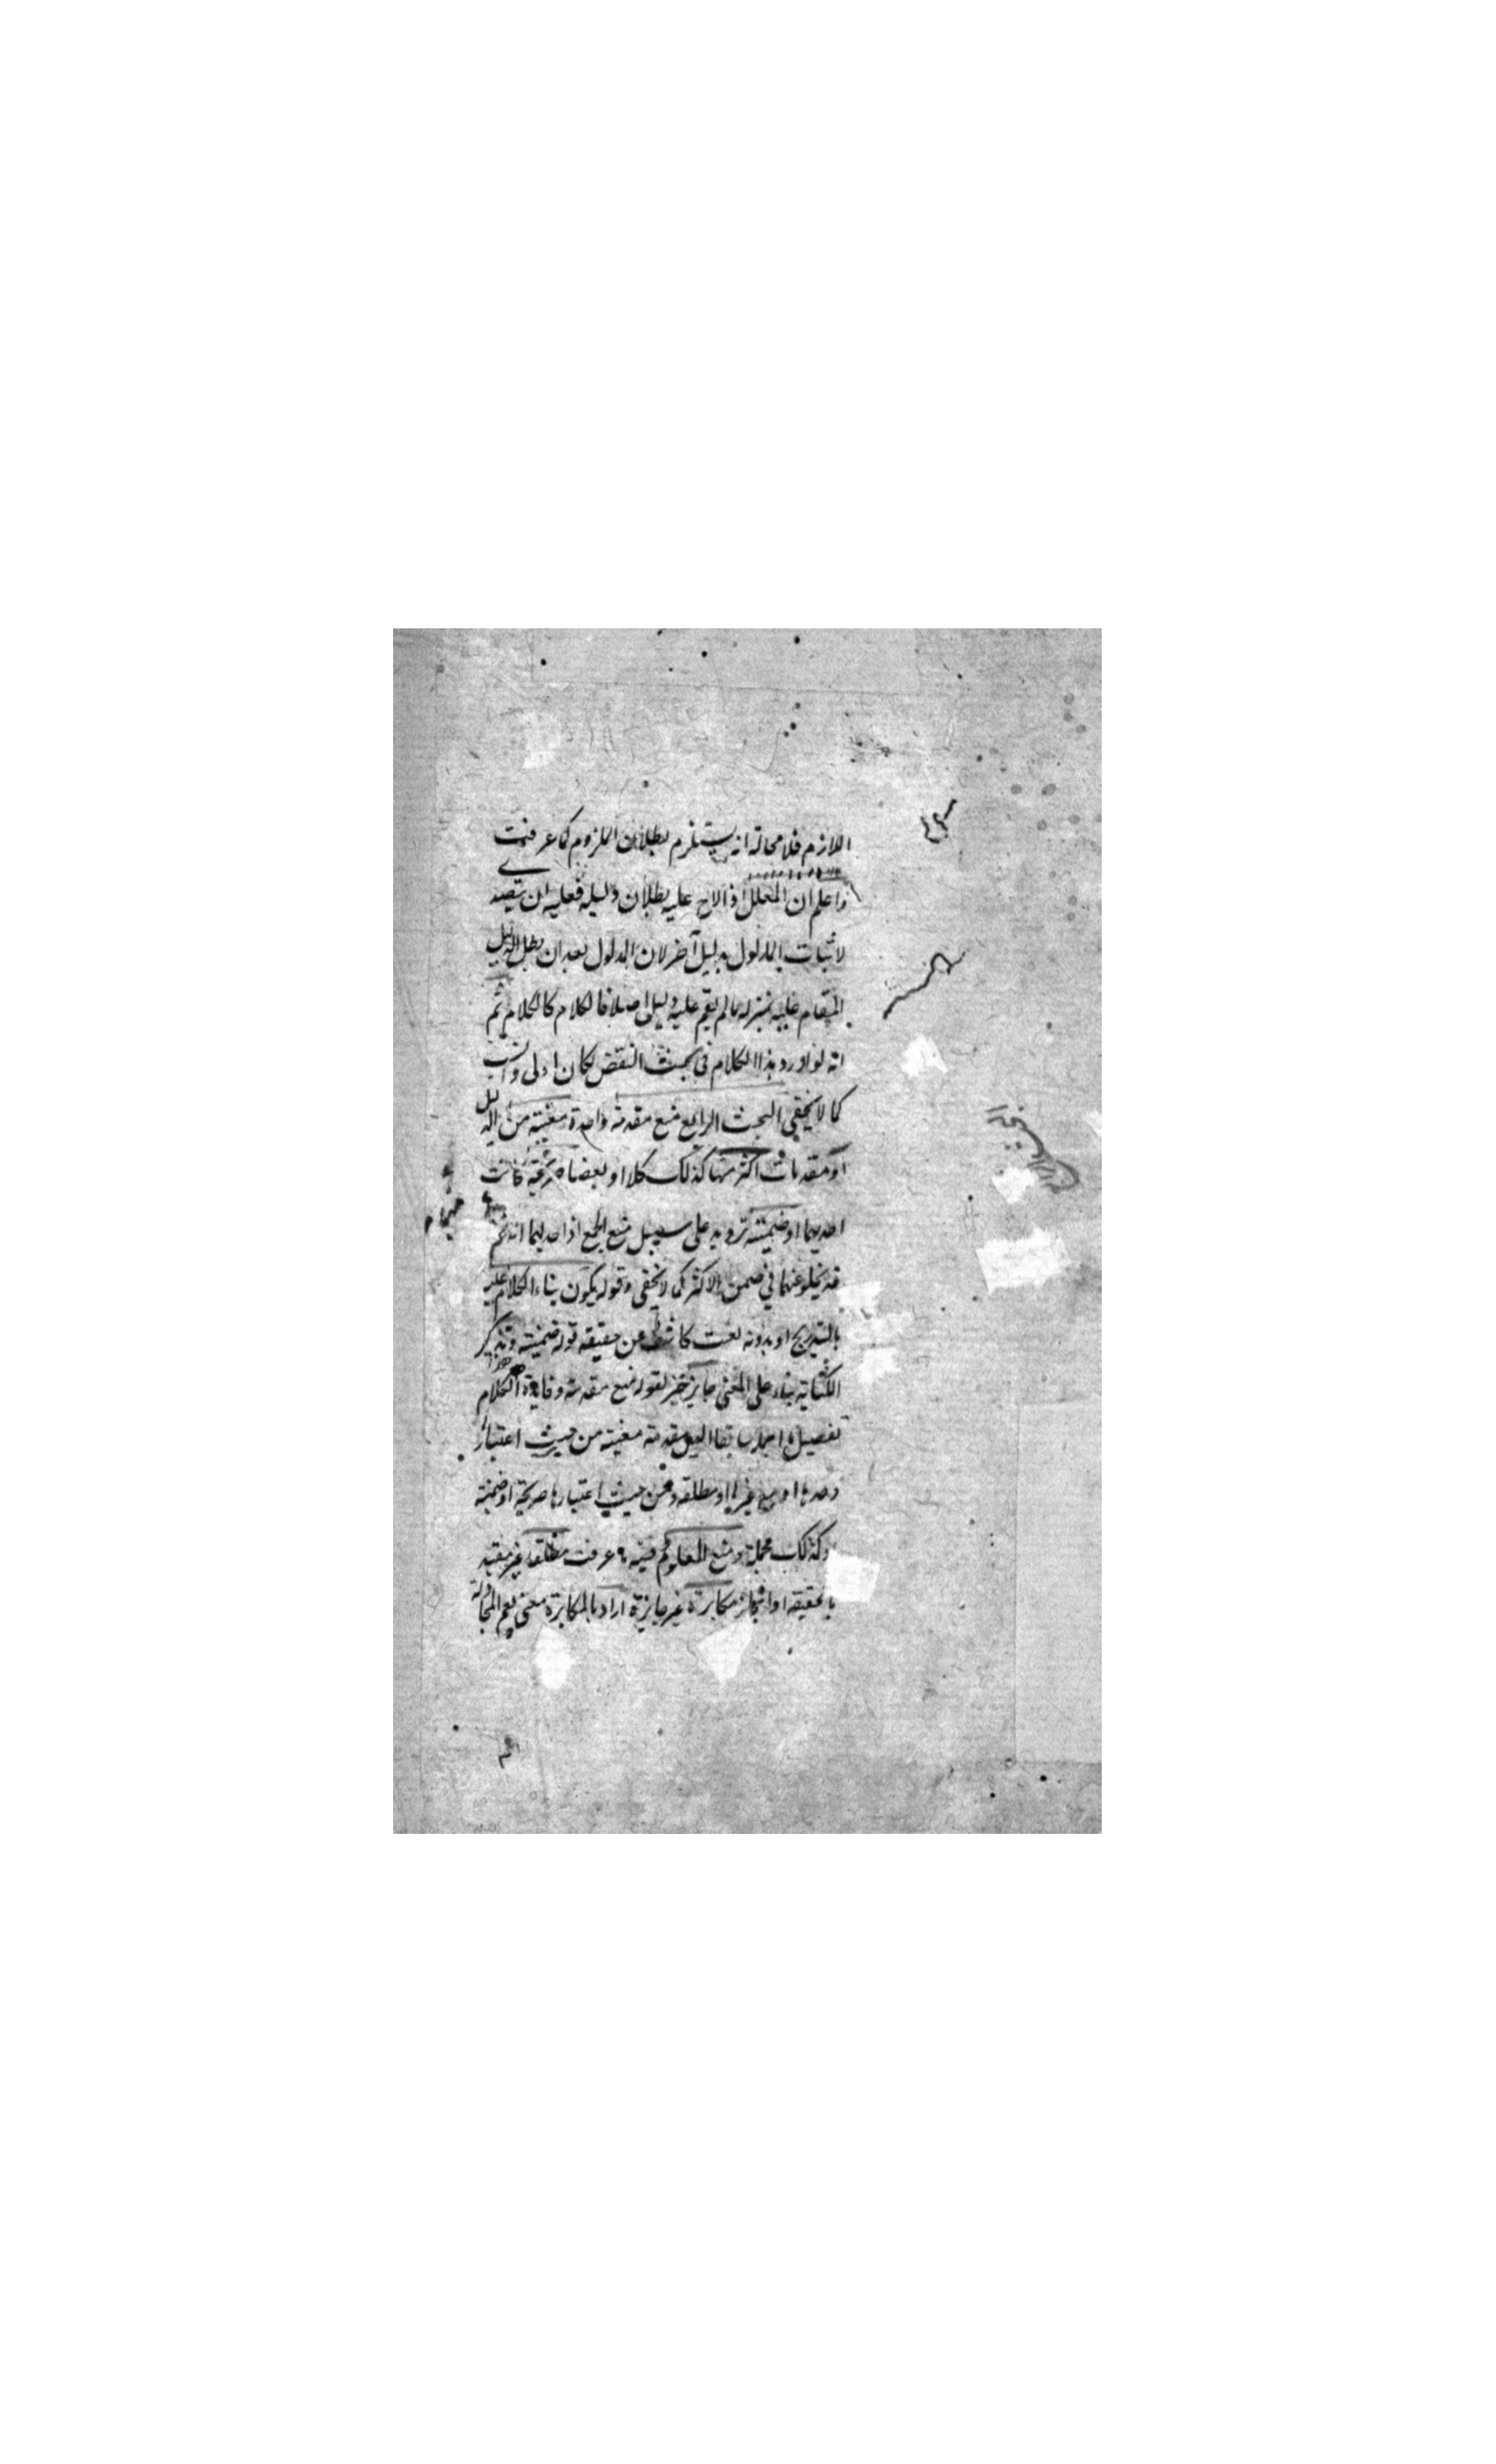 اللازم فلا محالة انه يستلزم بطلان الملزوم كما عرفت
واعلم ان المعلل اذا لاح عليه بطلان دليله فعليه ان يتصدى
لاثبات المدلول بدليل آخر لان المدلول بعد ان بطل الدليل
المقام عليه بمنزلة ما لم يقم عليه دليل اصلا فالكلام كالكلام ثم
انه لو اورد هذا الكلام في بحث النقض لكان اولى وانسب
كما لا يخفى البحث الرابع منع مقدمة واحدة معينة من الدليل
او مقدمات اكثر منها كذلك كلا او بعضا صريحة كانت
احديهما او ضمنية ترديد على سبيل منع الجمع اذ احديهما
قد يخلو عنهما في ضمن الاكثر كما لا يخفى وقوله يكون بناء الكلام عليه
بالتدريج او بدونه نعت كاشف عن حقيقة قوله ضمنية وتذكير
بناء على المعنى جايز خبر لقوله منع مقدمة وفايدة الكلام
تفصيل مقدمة معينة من حيث اعتبار
وحدها او مع غيرها او مطلقة ومن حيث اعتبارها صريحة او ضمنية
وكذلك مجملة ومنع المعلوم عرفت مطلقا غير مقيد
بالحقيقة او المجاز مكابرة غير جايزة اراد بالمكابرة معنى يعم المجادلة